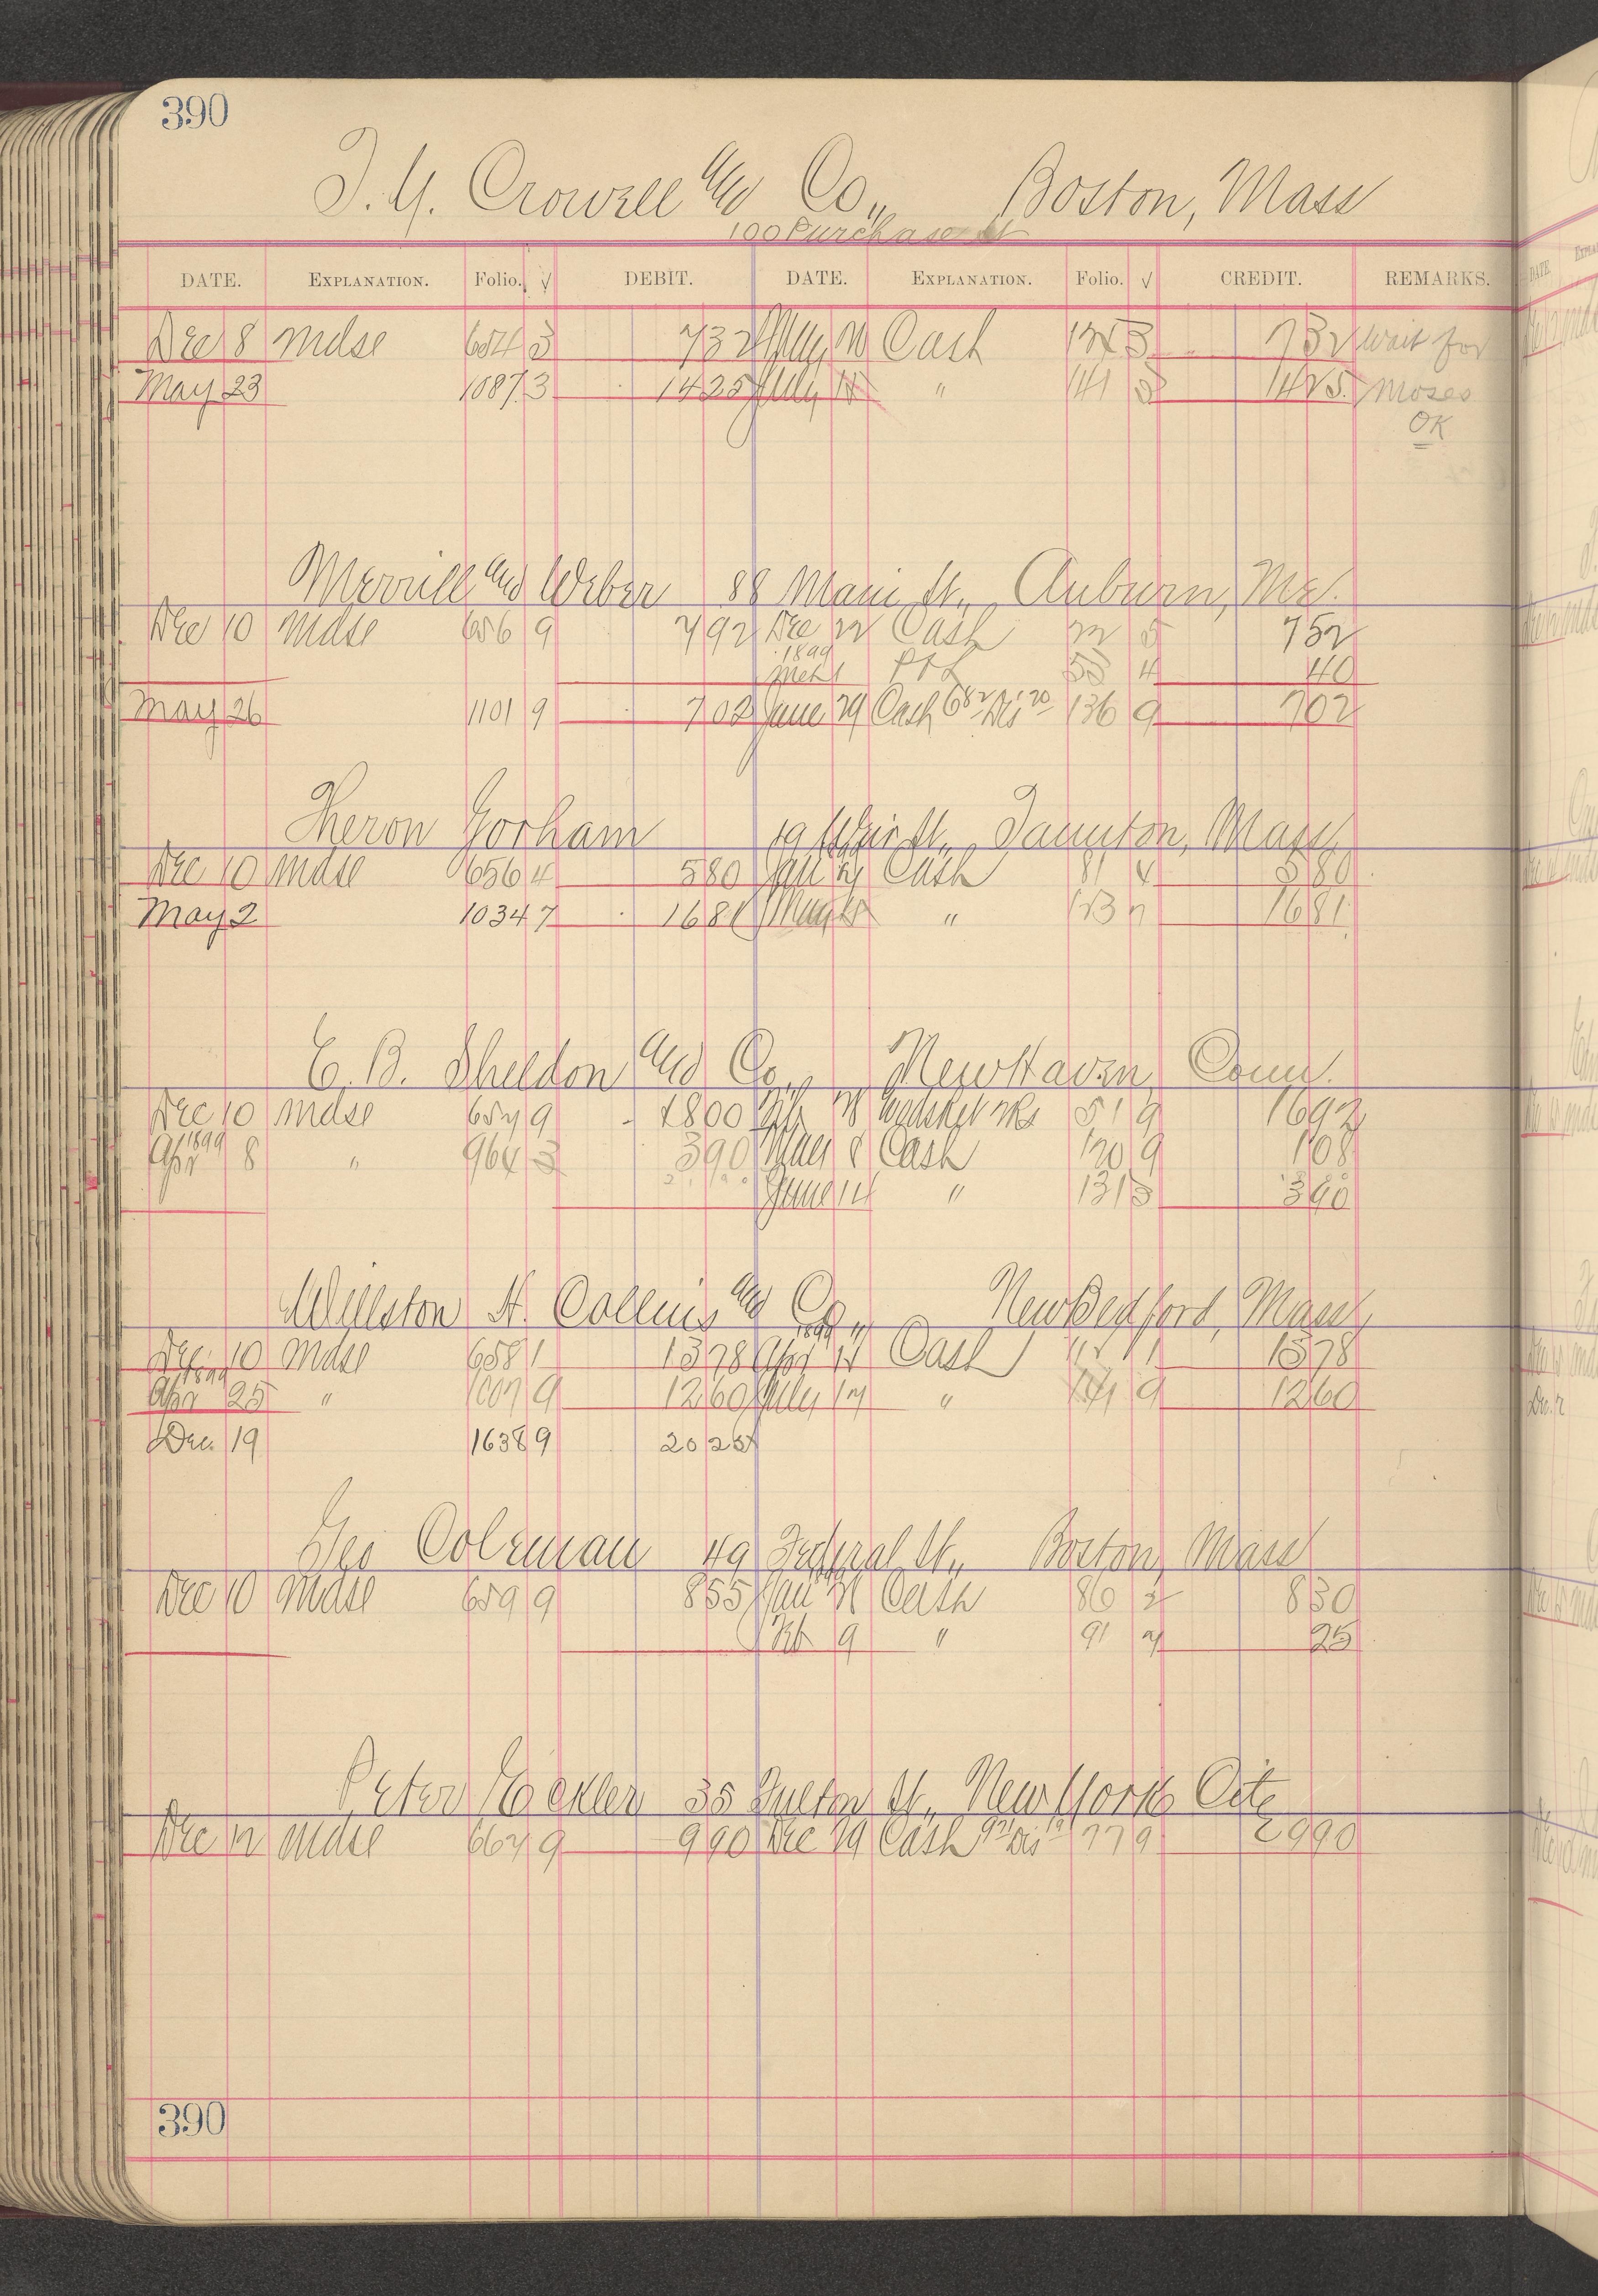 390
T. Y. Crowell and Co., Boston, Mass
100 Purchase St
DATE. EXPLANATION. Folio. √ DEBIT. DATE. EXPLANATION. Folio. √ CREDIT. REMARKS.
Dec 8 Mdse 654 3 732 Cash 732 Wait for
May 23 1087 3 1425 July " 141 3 1425 Moses
OK
Merrill and Weber 88 Main St., Auburn, Me.
Dec 10 Mdse 656 9 792 Dec 22 Cash 22 5 752
1899
Mch 1 55 4 40
May 26 1101 9 702 June 29 Cash 682 Dis 20 136 9 702
Theron Gorham 19 Weir St., Taunton, Mass
Dec 10 Mdse 656 4 580 Jan Cash 81 4 580
May 2 1034 7 1681 May " 123 1681
E. B. Sheldon and Co., New Haven Conn.
Dec 10 Mdse 657 9 1800 51 9 1692
1899
Apr 8 " 964 3 390 May 8 Cash 120 9 108
June 14 " 131 5 390
Williston H. Collins and Co., New Bedford, Mass
1899
Dec 10 Mdse 658 1 1378 Apr Cash 1378
1899
Apr 25 " 1007 9 1260 July 17 " 141 9 1260
Dec. 19 1638 9 2025
Geo Coleman 49 Federal St., Boston, Mass
Dec 10 Mdse 659 9 855 Jan Cash 86 2 830
Feb 9 " 91 25
Peter Eckler 35 Fulton St., New York City
Dec 12 Mdse 667 9 990 Dec 29 Cash Dis 77 9 990
390